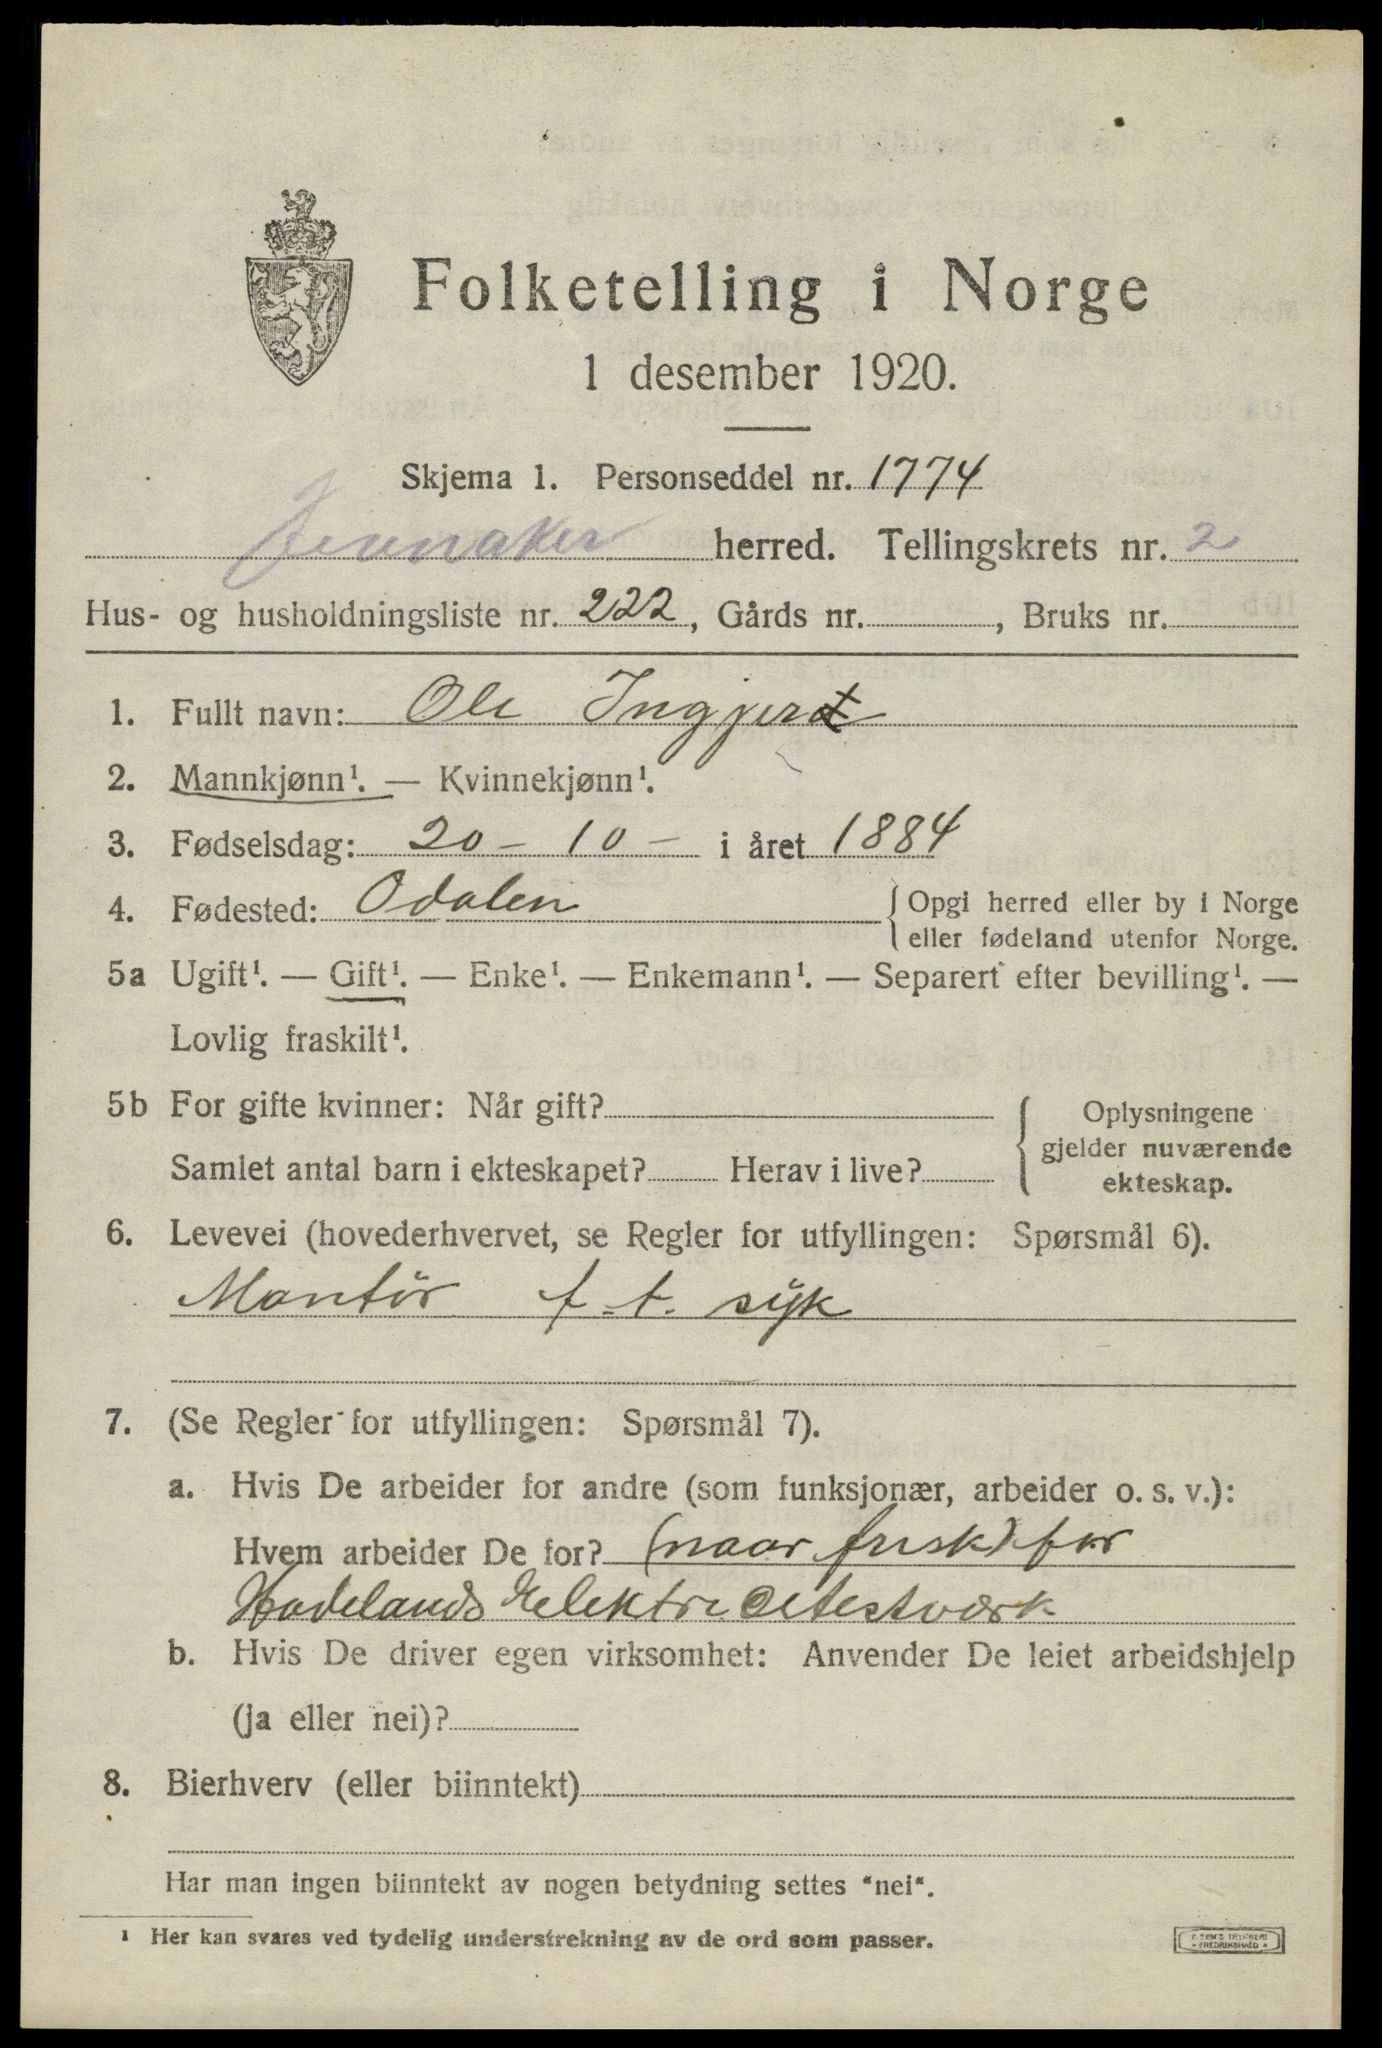 Folketelling i Norge
1 desember 1920.
Skjema 1. Personseddel nr. 1774
Jevnaker herred. Tellingskrets nr. 2
Hus- og husholdningsliste nr. 222, Gårds nr. , Bruks nr.
1. Fullt navn: Ole Ingjer
2. Mannkjønn¹. — Kvinnekjønn¹.
3. Fødselsdag: 20 - 10 - i året 1884
4. Fødested: Odalen { Opgi herred eller by i Norge
eller fødeland utenfor Norge.
5a Ugift¹. — Gift¹. — Enke¹. — Enkemann¹. — Separert efter bevilling¹. —
Lovlig fraskilt¹.
5b For gifte kvinner: Når gift? { Oplysningene
gjelder nuværende
Samlet antal barn i ekteskapet? Herav i live?
ekteskap.
6. Levevei (hovederhvervet, se Regler for utfyllingen: Spørsmål 6).
Montör f. t. syk
7. (Se Regler for utfyllingen: Spørsmål 7).
a. Hvis De arbeider for andre (som funksjonær, arbeider o. s. v.):
Hvem arbeider De for? (naar frisk) for
Hadelands Elektricitetsværk
b. Hvis De driver egen virksomhet: Anvender De leiet arbeidshjelp
(ja eller nei)?
8. Bierhverv (eller biinntekt)
Har man ingen biinntekt av nogen betydning settes "nei".
¹ Her kan svares ved tydelig understrekning av de ord som passer.